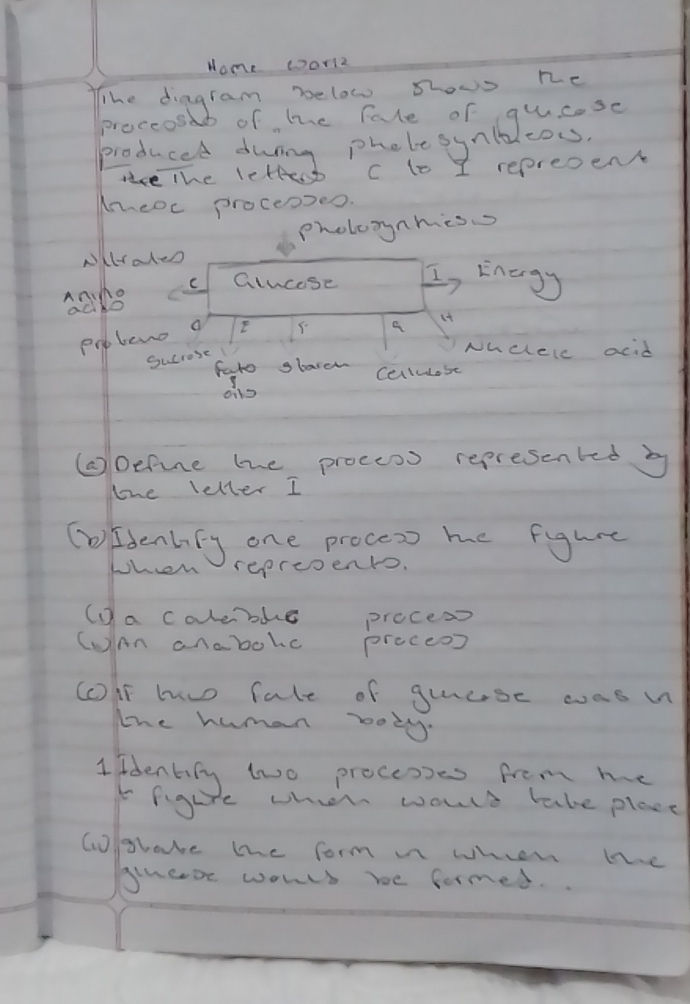 Home Work
The diagram below shows the
process of the fate of glucose
produced during photosynthesis.
The letters C to I represent
these processes.
photosynthesis
Nitrates
C
Glucose
I
Energy
Amino
acids
proteins
E
F
G
H
Sucrose
fats
&
oils
starch
Cellulose
Nucleic acid
(a) Define the process represented by
the letter I
(b) Identify one process the figure
which represents.
(i) a catabolic process
(ii) An anabolic process
(c) If this fate of glucose was in
the human body.
1 Identify two processes from the
figure which would take place
(ii) State the form in which the
glucose would be formed...